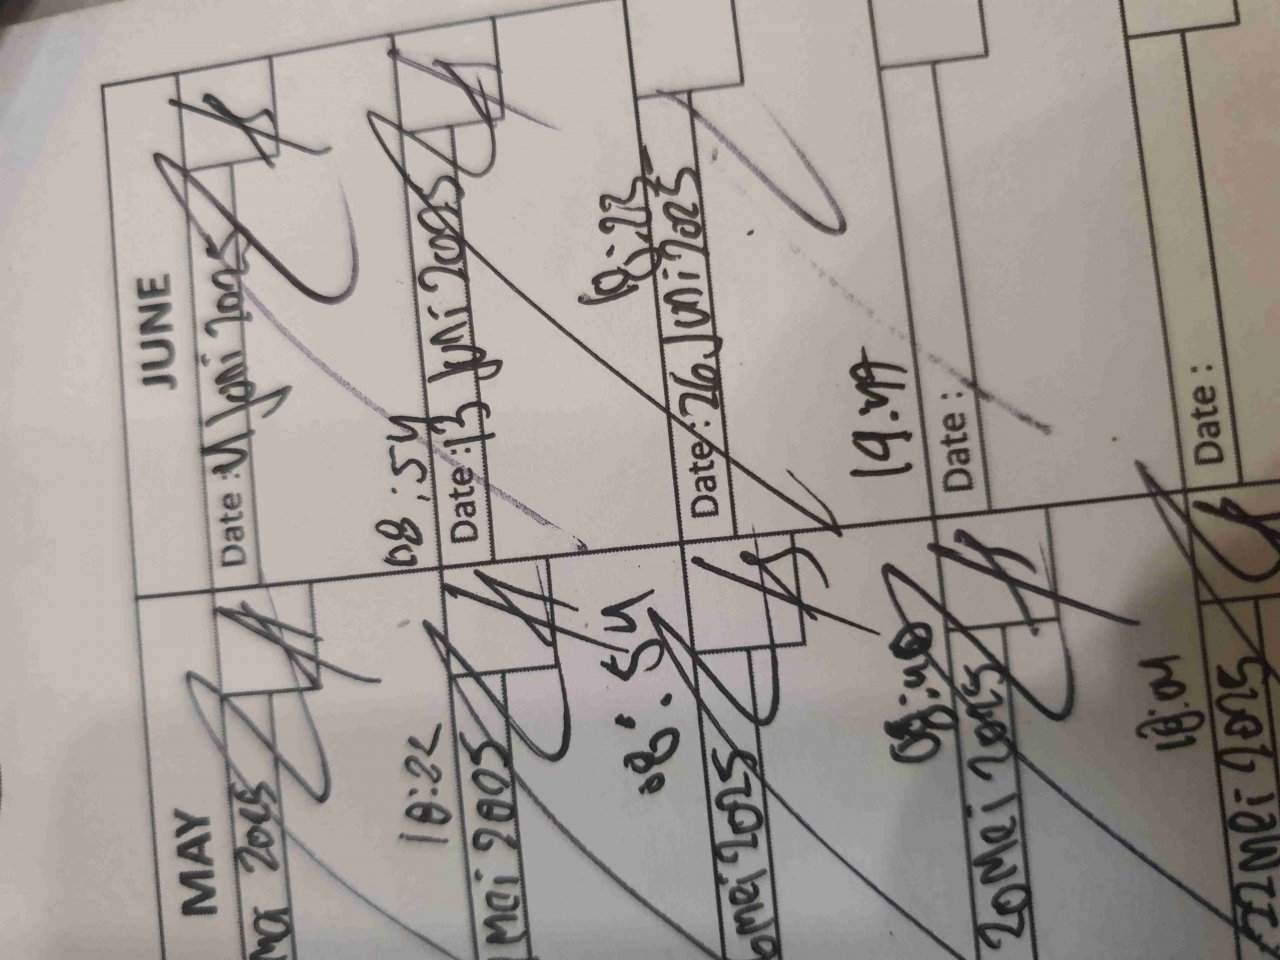 MAY
2025
18:22
Mei 2005
08:54
mei 2025
08:40
20 Mei 2025
18:04
22 Mei 2025
JUNE
Date : Juni 2025
08:54
Date : 13 Juni 2025
18:23
Date : 26 Juni 2025
Date :
Date :